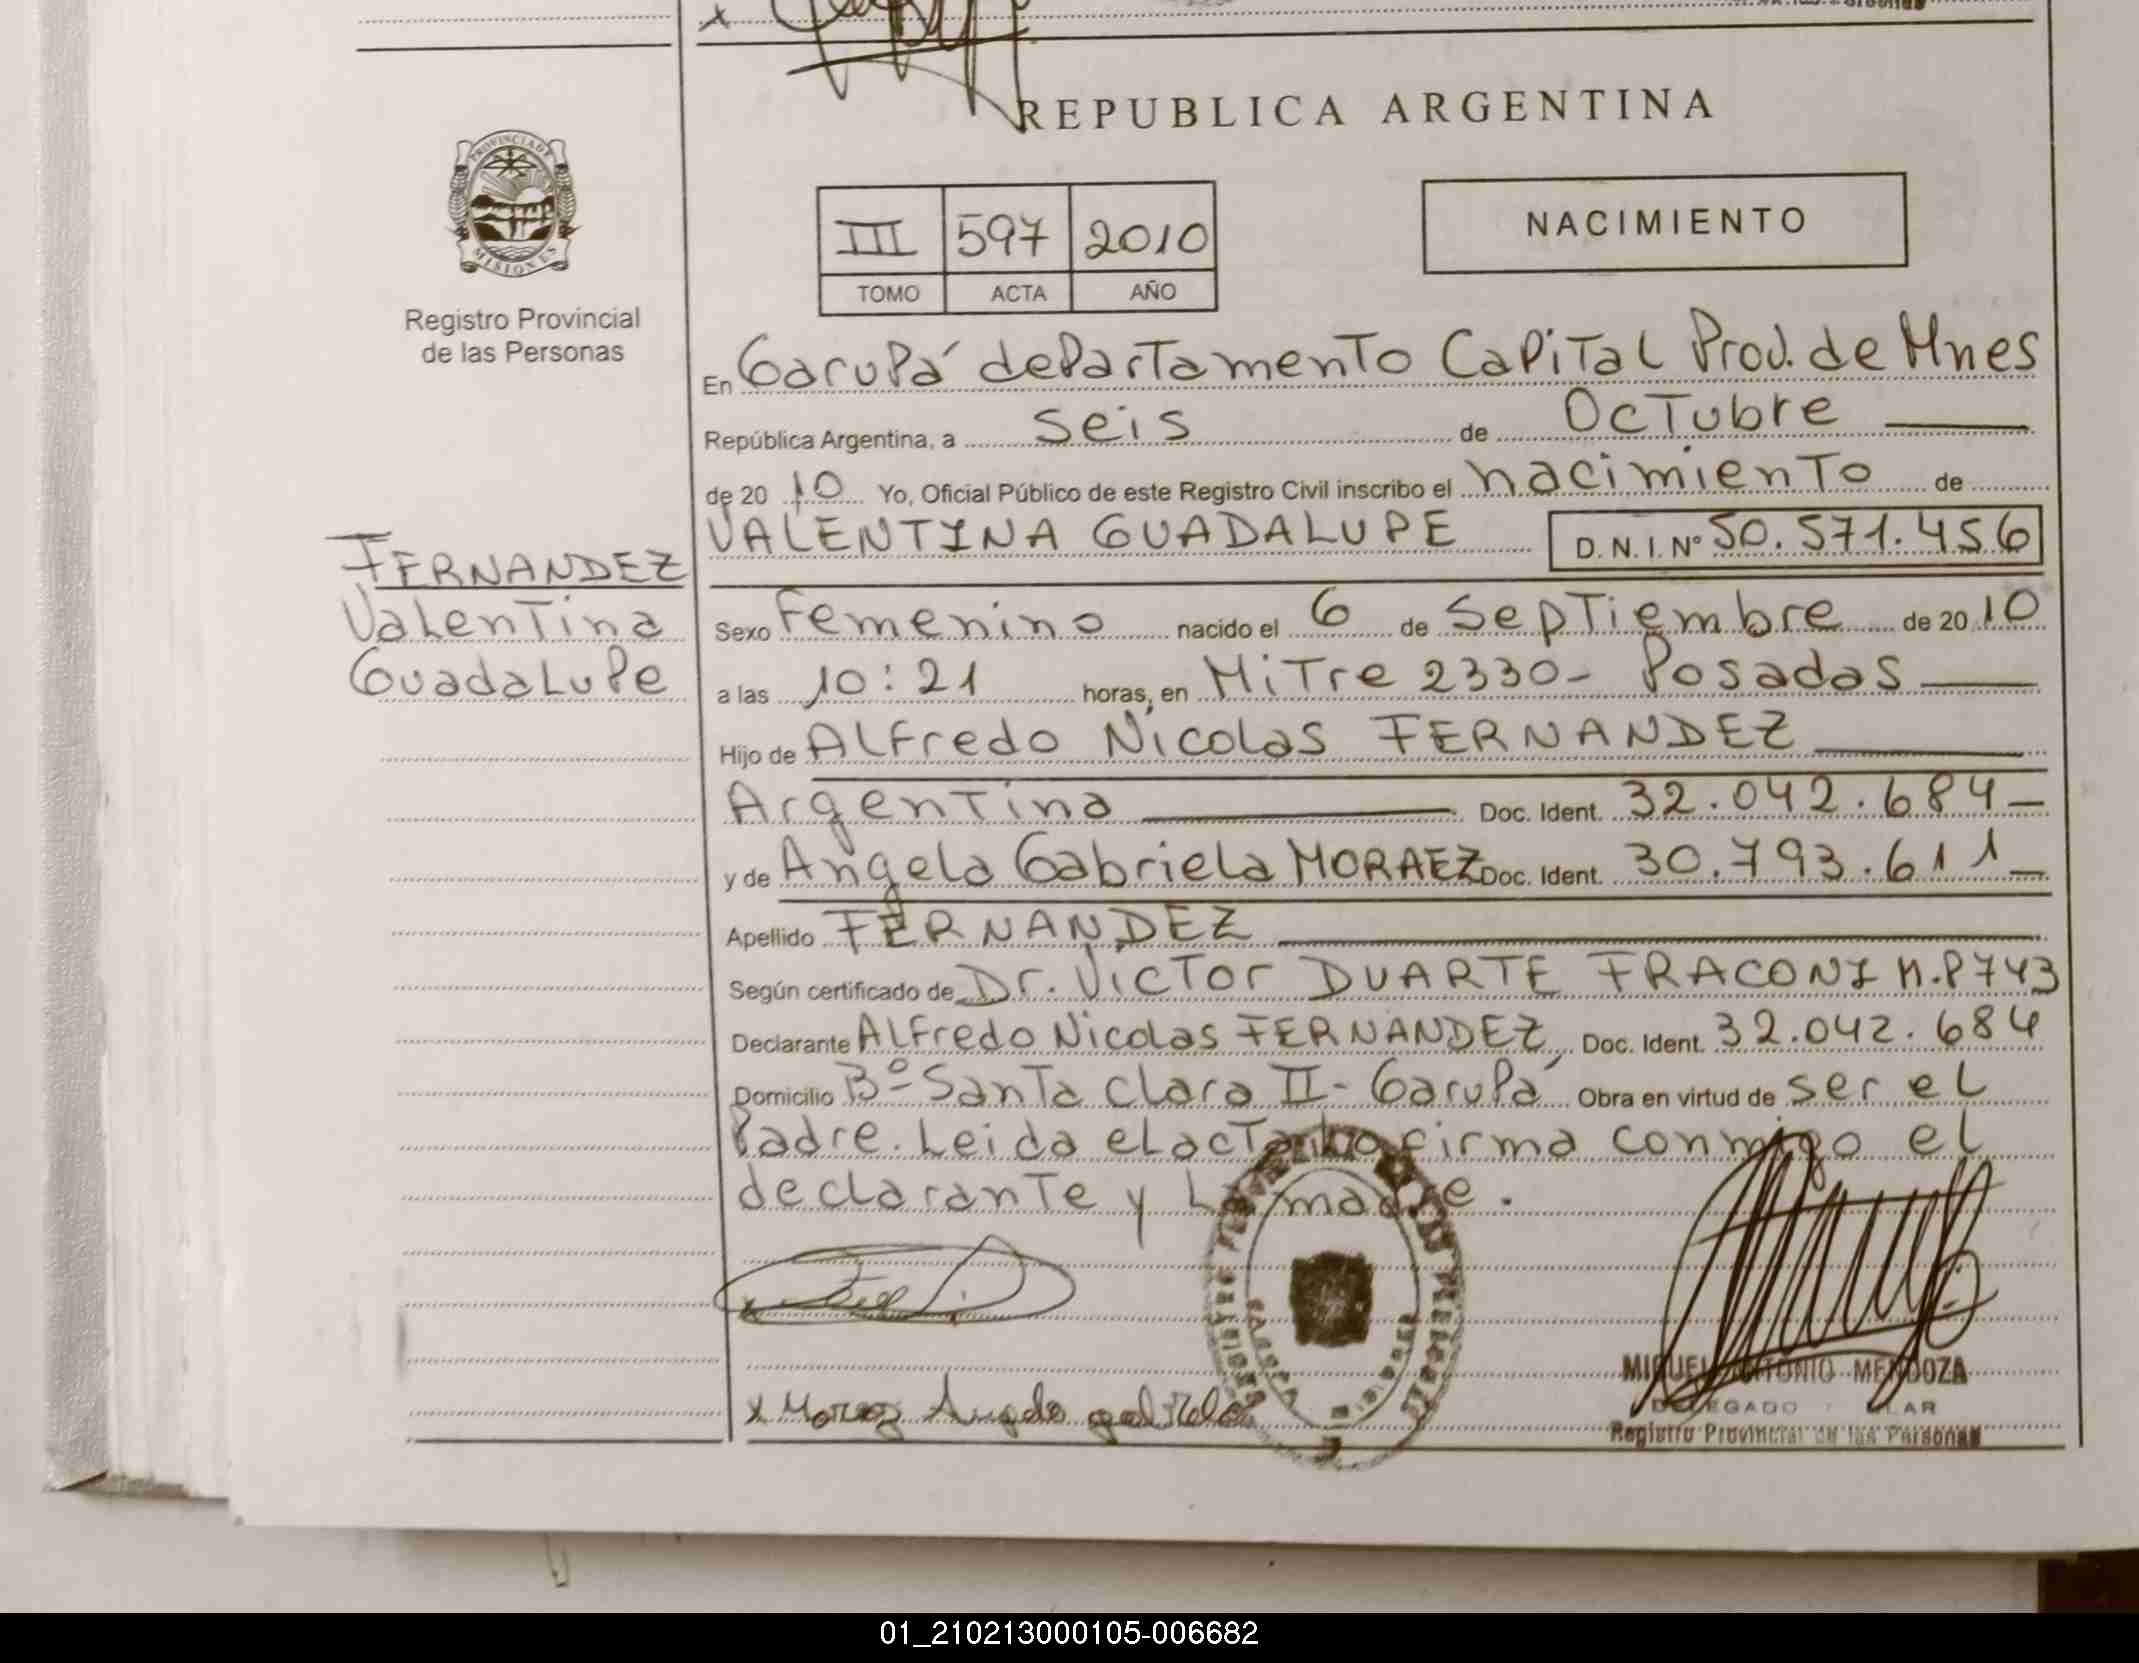 REPUBLICA ARGENTINA
PROVINCIA DE
MISIONES
Registro Provincial
de las Personas
III 597 2010
TOMO ACTA AÑO
NACIMIENTO
En Garupá departamento Capital Prov. de Mnes
República Argentina, a seis de Octubre
de 20 10 Yo, Oficial Público de este Registro Civil inscribo el nacimiento de
VALENTINA GUADALUPE D.N.I. Nº 50.571.456
FERNANDEZ
Valentina
Guadalupe
Sexo Femenino nacido el 6 de Septiembre de 20 10
a las 10:21 horas, en Mitre 2330- Posadas
Hijo de Alfredo Nicolas FERNANDEZ
Argentina Doc. Ident. 32.042.684
y de Angela Gabriela MORAEZ Doc. Ident. 30.793.611
Apellido FERNANDEZ
Según certificado de Dr. Victor DUARTE FRACONI M.P743
Declarante Alfredo Nicolas FERNANDEZ Doc. Ident. 32.042.684
Domicilio Bº Santa Clara II - Garupá Obra en virtud de ser el
Padre. Leida el acta firma conmigo el
declarante y La madre.
x
x Moraez Angela gabriela
MIGUEL ANTONIO MENDOZA
DELEGADO
Registro Provincial de las Personas
01_210213000105-006682